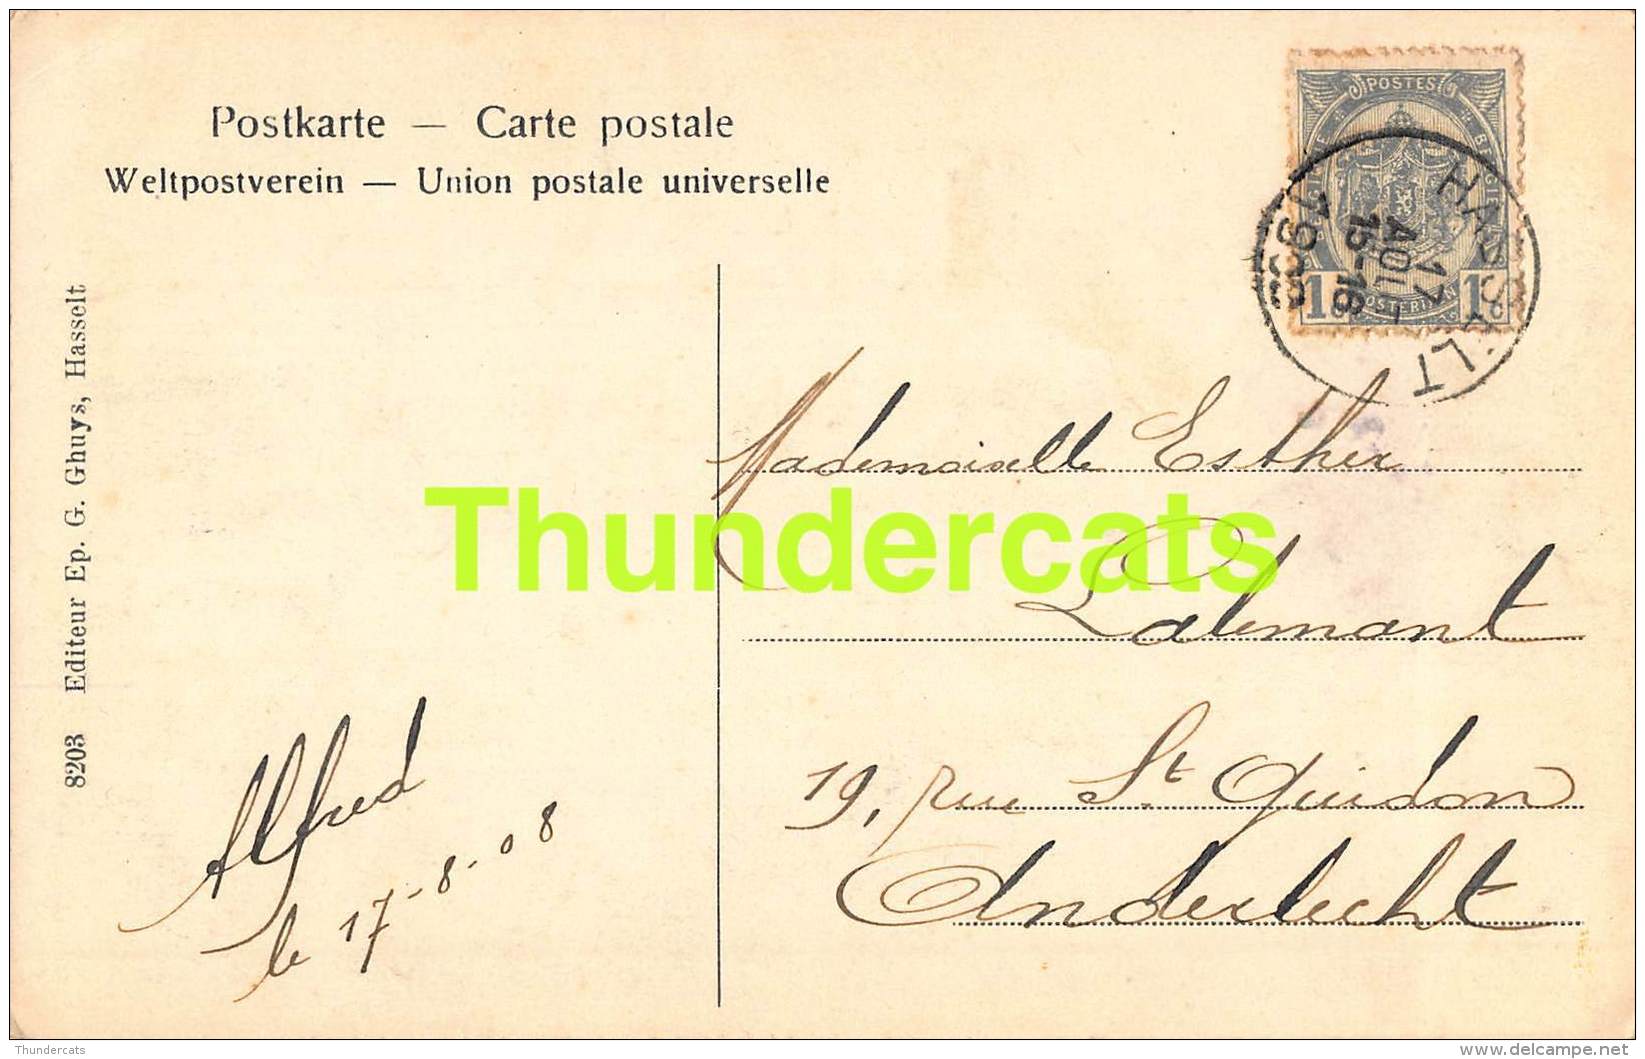 Postkarte — Carte postale
Weltpostverein — Union postale universelle
POSTES
1 1
HASSELT
17
AOU
15-16
1908
8203 Editeur Ep. G. Ghuys, Hasselt
Mademoiselle Esther
Lalemant
19, rue St Guidon
Anderlecht
Alfred
le 17-8-08
Thundercats
Thundercats
delcampe.net